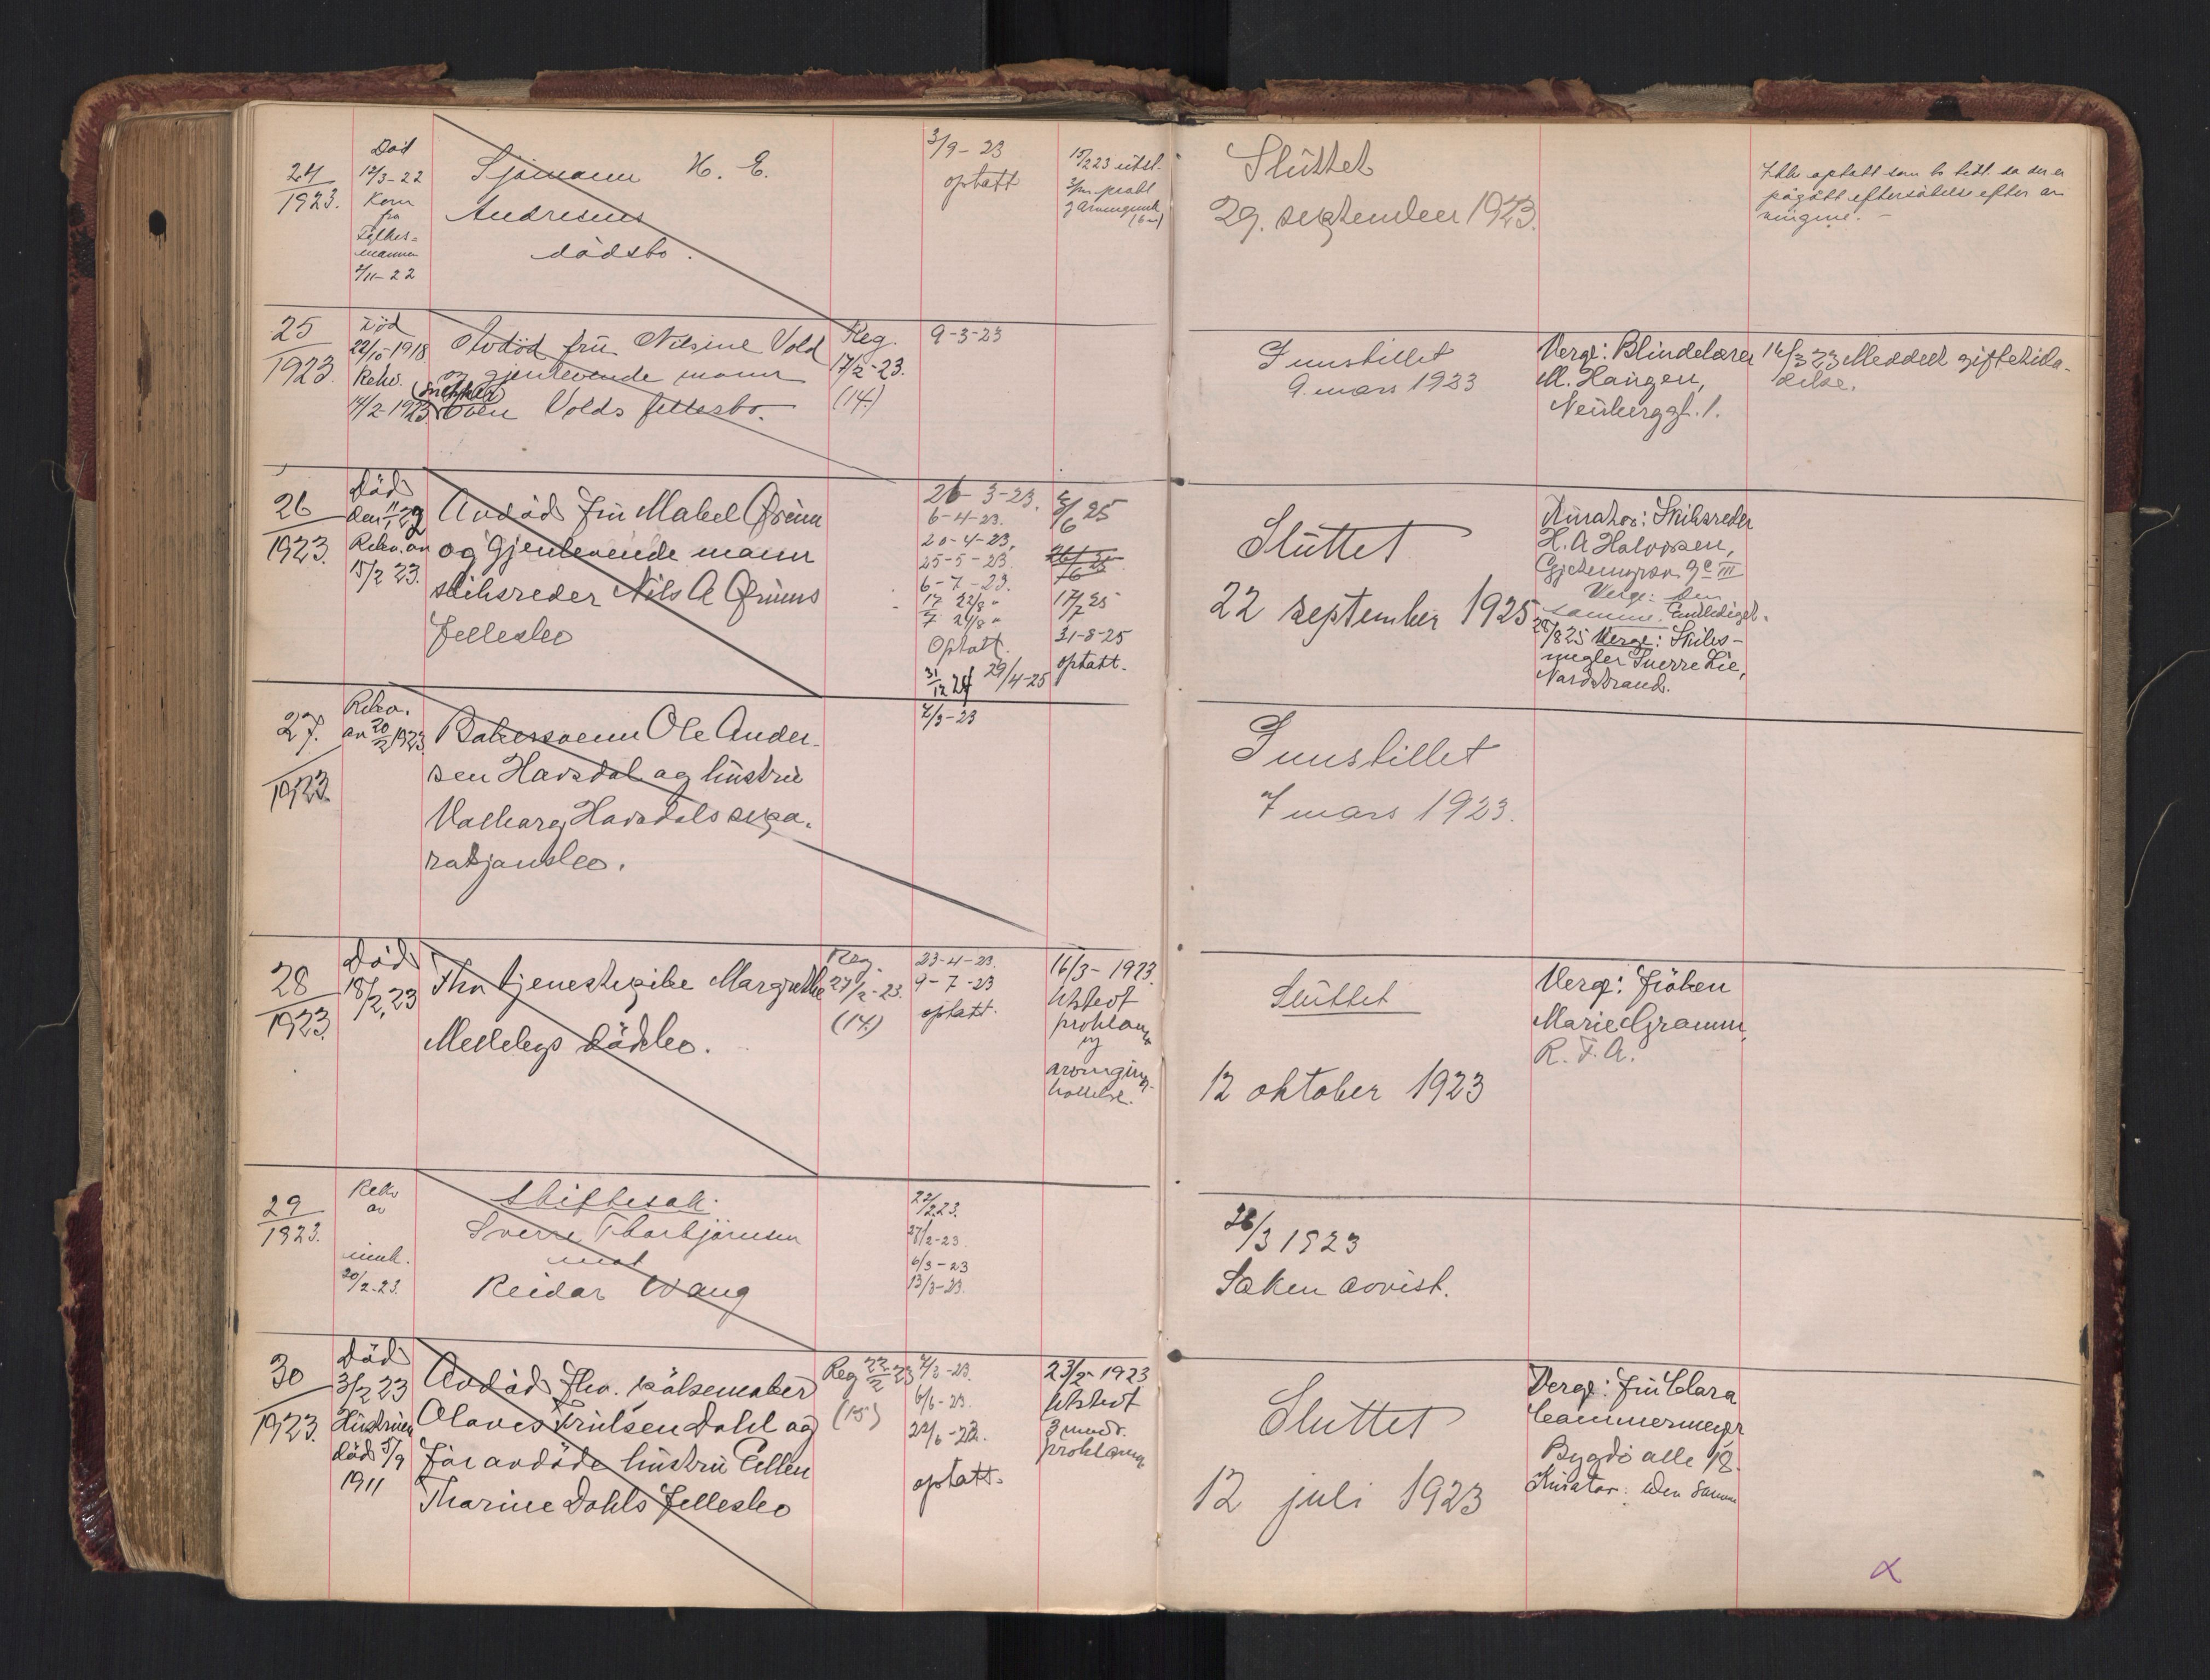 24
1923.
Död
12/3-22
Kom
fra
Fylkes=
mannen
2/11-22
Sjömann H. E.
Andresens
dödsbo.
3/9-23
optatt
15/2 23 utst.
3/m. prokl
Sluttet
29. september 1923.
Ikke optatt som bo tidl. da der er
pågått eftersökelse efter ar
vingene. -
25
1923
Död
22/10-1918
Rekv.
14/2-1923
Avdöd fru Nilsine Vold
og gjenlevende mann
(snekker)
Oven Volds fellesbo.
Reg.
17/2-23.
(14)
9-3-23
Innstillet
9. mars 1923
Verge: Blindelærer
M. Haugen,
Neuberggt. 1.
16/3 23 Meddelt giftetilla-
delse.
26
1923.
Död
den 11/1 29
Rekv. av
15/2 23.
Avdöd Fru Mabel Ørium
og gjenlevende mann
skibsreder Nils A Øriums
Fellesbo
26-3-23.
6-4-23.
20-4-23,
25-5-23.
6-7-23.
17/7 22/8 "
24/8 "
Optatt.
31/12 24 29/4-25
4/6 25
26/6 25
17/7 25
31-8-25
optatt.
Sluttet
22 september 1925
Kurator: Skibsreder
H. A Halvorsen,
Gjetemyrsv. 9c III
Verge: den
samme. Entlediget.
28/8 25 Verge: Skibs-
megler Sverre Lie,
Nordstrand.
27.
1923
Rekv.
av 20/2 1923
Bakersvenn Ole Ander-
sen Havsdal og hustru
Valborg Havsdals sepa-
rasjonsbo.
7/3-23
Innstillet
7 mars 1923.
28
1923.
Död
18/2 23
Fhv tjenestepike Margrethe
Mellebys dödsbo.
Reg.
27/2-23.
(14)
23-4-23.
9-7-23
optatt.
16/3-1923.
Utstedt
proklama
og
arvinginn-
kallelse.
Sluttet
12 oktober 1923
Verge: Fröken
Marie Gramm,
R. F. A.
29
1923.
Rekv
av
innk.
20/2-23.
Skiftesak.
Sverre Thorbjörnsen
mot
Reidar Wang
22/2 23.
27/2-23.
6/3-23
13/3-23.
26/3 1923
Saken avvist.
30
1923.
Död
3/2 23
Hustruen
död 5/9
1911
Avdöd Fhv. pölsemaker
Olaves Knutsen Dahl og
för avdöde hustru Ellen
Thorine Dahls Fellesbo
Reg 22/2 23
(15)
7/3-23.
6/6-23.
22/6-23.
optatt.
23/2-1923
Utstedt
3 mndr.
proklama
Sluttet
12 juli 1923
Verge: Fru Clara
Cammermeyer
Bygdö alle 18.
Kurator: den samme